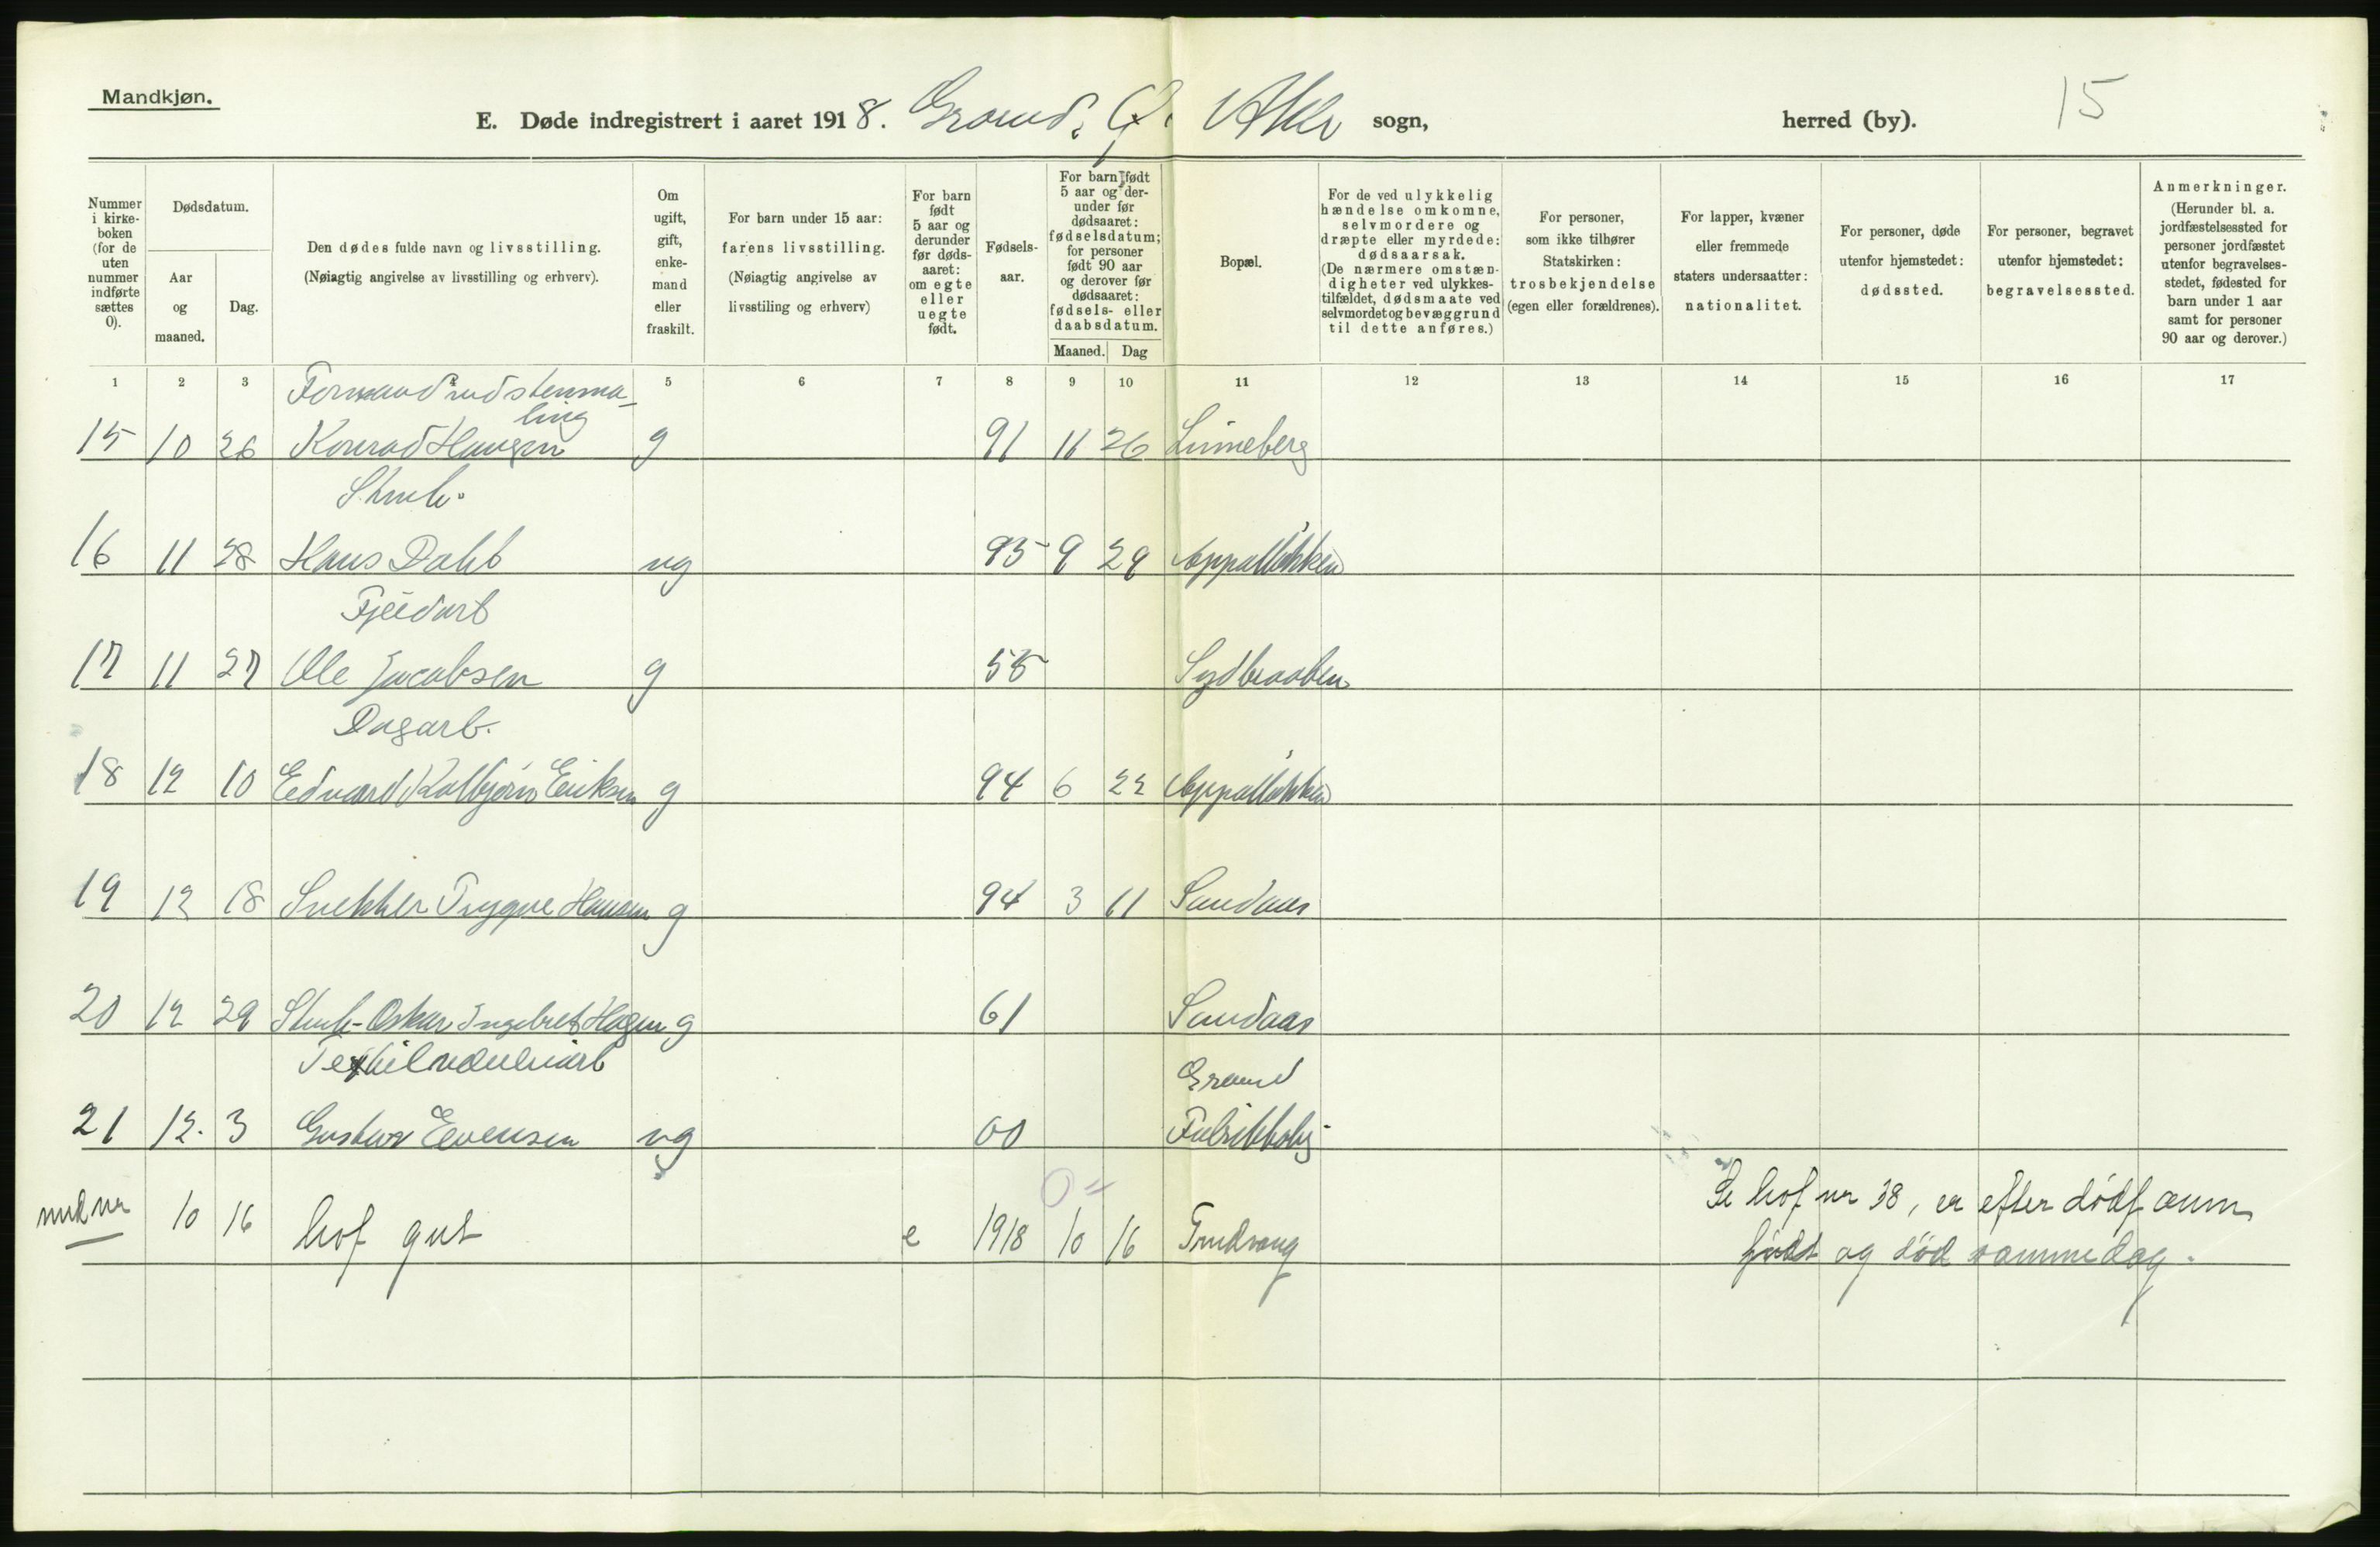 Mandkjøn.
E. Døde indregistrert i aaret 1918. Grorud, Ø. Aker sogn, herred (by). 15
Nummer i kirke-boken (for de uten nummer indførte sættes 0).
Dødsdatum.
Aar og maaned.
Dag.
Den dødes fulde navn og livsstilling.
(Nøiagtig angivelse av livsstilling og erhverv).
Om ugift, gift, enke-mand eller fraskilt.
For barn under 15 aar:
farens livsstilling.
(Nøiagtig angivelse av livsstiling og erhverv)
For barn født 5 aar og derunder før døds-aaret: om egte eller uegte født.
Fødsels-aar.
For barn født 5 aar og der-under før dødsaaret: fødselsdatum; for personer født 90 aar og derover før dødsaaret: fødsels- eller daabsdatum.
Maaned. Dag
Bopæl.
For de ved ulykkelig hændelse omkomne, selvmordere og dræpte eller myrdede: dødsaarsak.
(De nærmere omstæn-digheter ved ulykkes-tilfældet, dødsmaate ved selvmordet og bevæggrund til dette anføres.)
For personer, som ikke tilhører Statskirken: trosbekjendelse (egen eller forældrenes).
For lapper, kvæner eller fremmede staters undersaatter: nationalitet.
For personer, døde utenfor hjemstedet: dødssted.
For personer, begravet utenfor hjemstedet: begravelsessted.
Anmerkninger.
(Herunder bl. a. jordfæstelsessted for personer jordfæstet utenfor begravelses-stedet, fødested for barn under 1 aar samt for personer 90 aar og derover.)
1 2 3 4 5 6 7 8 9 10 11 12 13 14 15 16 17
Formand ved stenma-
ling
15 10 26 Konrad Haugen g 91 11 26 Linneberg
Stenh.
16 11 28 Hans Dahl ug 95 9 29 Appalløkken
Fjeldarb
17 11 27 Ole Jacobsen g 55 Sydbraaten
Dagarb.
18 12 10 Edvard Kolbjørn Eriksen g 94 6 22 Appalløkken
19 12 18 Snekker Trygve Hansen g 94 3 11 Sandaas
20 12 29 Stenh- Oskar Ingebret Hagen g 61 Sandaas
Textilindustriarb Grorud
21 12. 3 Gustav Evensen ug 00 Fabrikbolig
10 16 hof gut e 1918 10 16 Trudvang
Se hof nr 38, er efter dødf anm
født og død samme dag.